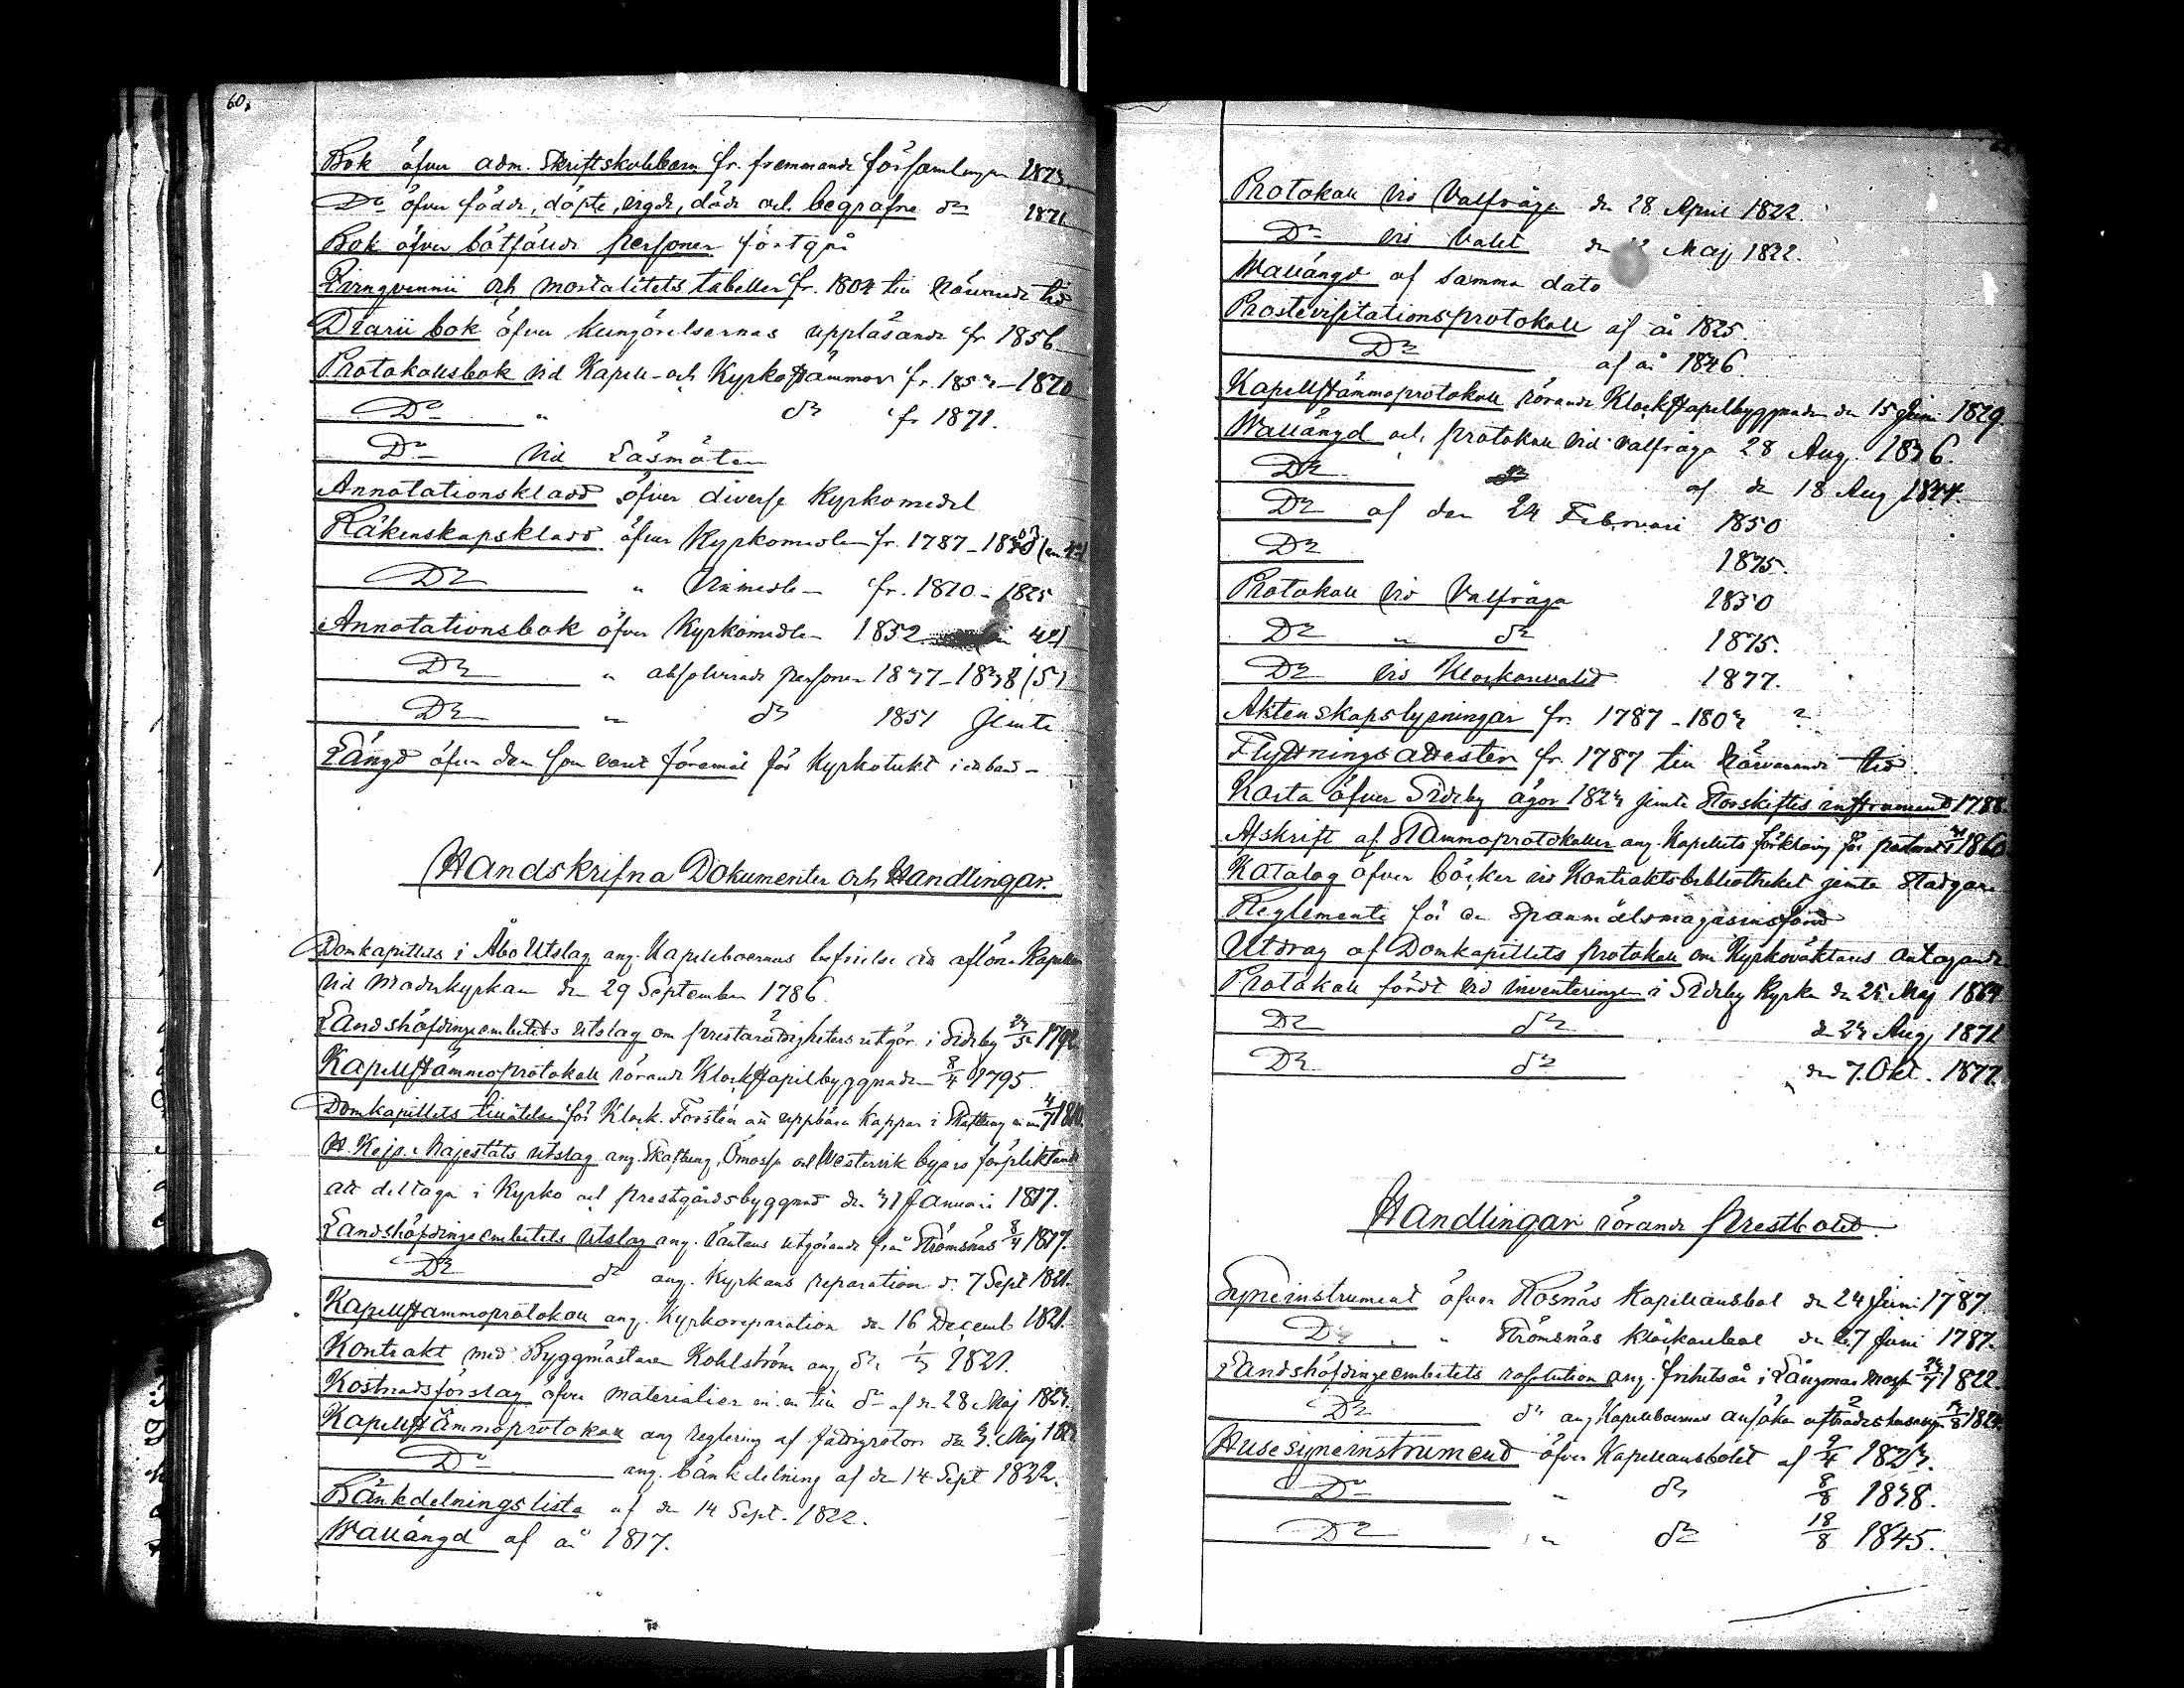 60.
Bok öfver adm. Skriftskolebarn fr. fremmande församlingar 1873.
Do öfver födde, döpte, vigde, döde och begrafne do 1871
Bok öfver bötfälde personer förtgår
och mortalitets tabeller fr. 1804 till närvarande tid
Diarii bok öfver kungörelsernas uppläsande fr 1856
Protokollsbok vid Kapell- och Kyrkostämmor fr. 1853–1870
Do " do fr 1871.
Do vid Läsmöten
Annotationskladd öfver diverse Kyrkomedel
Räkenskapskladd öfver Kyrkomedlen fr. 1787–18
Do " Vinmedlen fr. 1810–1825
Annotationsbok öfver Kyrkomedlen 1832 42)
Do " absolverade personer 1837–1838 (53)
Do " do 1851 Jemte
Längd öfver dem som varit föremål för Kyrkotukt i ett band –
Handskrifna Dokumenter och Handlingar.
Domkapitlets i Åbo Utslag ang. Kapellboernas befrielse att aflöna Kapellan
vid Moderkyrkan den 29 September 1786.
Landshöfdinge embetets utslag om prestarättigheters utgör. i Sideby 179
Kapellstämmoprotokoll rörande Klockstapelbyggnaden 8/4 1795.
Domkapitlets tillåtelse för Klock. Forstén att uppbära kappar i Skaftung
H. Kejs. Majestäts utslag ang. Skaftung, Ömossa och Westervik byars förpliktande
att deltaga i Kyrko och prestgårdsbyggnad den 31 Januari 1817.
Landshöfdinge embetets Utslag ang. räntans utgörande från Strömsnäs 8/4 1817.
Do do ang. Kyrkans reparation d. 7 Sept 1821.
Kapellstämmoprotokoll ang. Kyrkoreparation den 16 Decemb 1821.
Kontrakt med Byggmästaren Kohlström ang do 1/3 1821.
Kostnadsförslag öfver materialier m.m till do af den 28 Maj 1823.
Kapellstämmoprotokoll ang reglering af fattigrotor den 3. Maj 182
Do ang. bänkdelning af den 14 Sept 1822.
Bänkdelningslista af den 14 Sept. 1822.
Wallängd af år 1817.
Protokoll vid Valfråga den 28 April 1822.
Do vid Valet den Maj 1822.
Wallängd af samma dato
Prostevisitationsprotokoll af år 1825.
Do af år 1846.
Kapellstämmoprotokoll rörande Klockstapelbyggnaden den 15 Juni 1829.
Wallängd och protokoll vid valfråga 28 Aug. 1836.
Do af den 18 Aug 1844.
Do af den 24 Februari 1850
Do 1875.
Protokoll vid Valfråga 1850
Do " do 1875.
Do vid Klockarevalet 1877.
Aktenskapslysningar fr. 1787–1803 ?
Flyttningsattester fr. 1787 till närvarande tid.
Karta öfver Sideby ägor 1823 jemte Storskiftes instrument 1788.
Afskrift af Stämmoprotokoller ang. Kapellets förklaring för pastorat 1860
Katalog öfver böcker vid Kontraktsbibliotheket jemte Stadgar
Reglemente för den Spanmålsmagasinsfond
Utdrag af Domkapitlets protokoll om Kyrkoväktares antagande
Protokoll fördt vid inventeringen i Sideby Kyrka den 25 Maj 1864
Do do den 23 Aug 1871
Do do den 7. Okt. 1877.
Handlingar rörande Prestbolet.
Syneinstrument öfver Kosnäs Kapellansbol den 24 Juni 1787.
Do " Strömsnäs klockarebol den 27 Juni 1787.
Landshöfdinge embetets resolution ang. frihetsår i Långmarmossa 1822.
Do do ang Kapellboernas ansökan 182
Husesyneinstrument öfver Kapellansbolet af 9/4 1823.
Do " do 8/8 1838.
Do " do 18/8 1845.